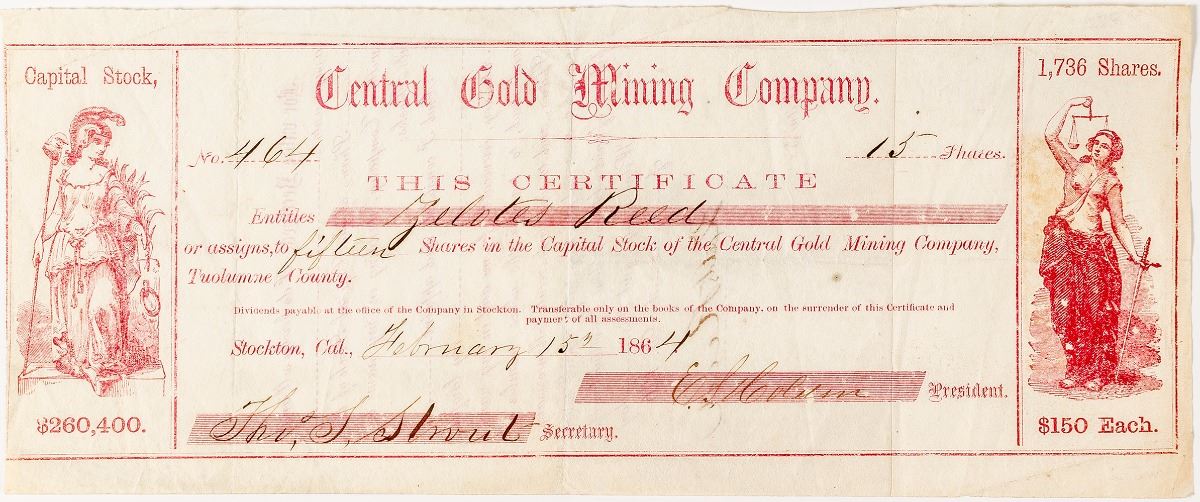 Capital Stock,
Central Gold Mining Company.
1,736 Shares.
No. 464
15 Shares.
THIS CERTIFICATE
Entitles Zelotes Reed
or assigns, to fifteen Shares in the Capital Stock of the Central Gold Mining Company,
Tuolumne County.
Dividends payable at the office of the Company in Stockton. Transferable only on the books of the Company, on the surrender of this Certificate and
payment of all assessments.
Stockton, Cal., February 15th 1864
President.
Thos. S. Strout Secretary.
$260,400.
$150 Each.